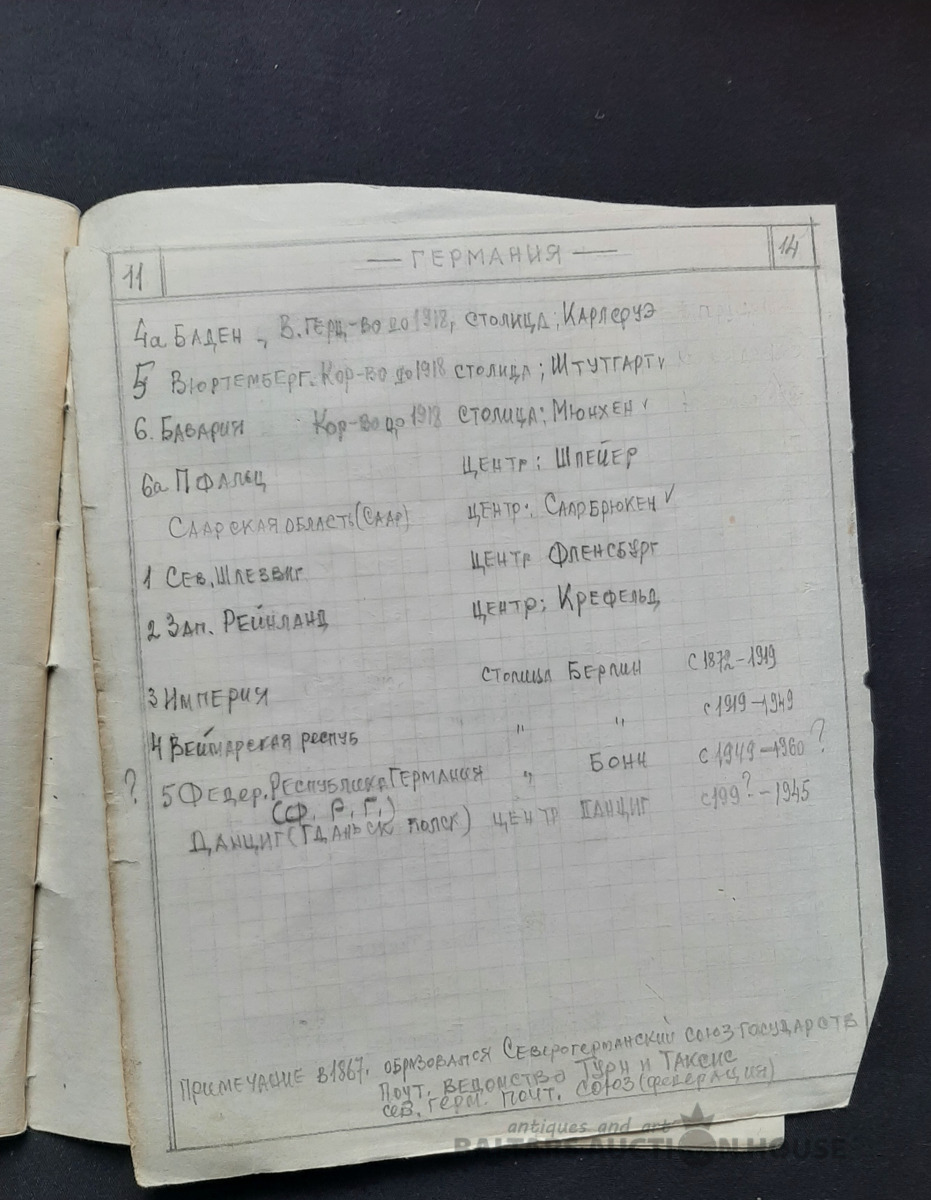 11 — ГЕРМАНИЯ — 14
4а БАДЕН - В. ГЕРЦ-ВО ДО 1918, СТОЛИЦА; КАРЛСРУЭ
5 ВЮРТЕМБЕРГ. КОР-ВО ДО 1918 СТОЛИЦА; ШТУТГАРТ ✓
6. БАВАРИЯ КОР-ВО ДО 1918 СТОЛИЦА; МЮНХЕН ✓
6а ПФАЛЬЦ ЦЕНТР; ШПЕЙЕР
СААРСКАЯ ОБЛАСТЬ (СААР) ЦЕНТР; СААРБРЮКЕН ✓
1 СЕВ. ШЛЕЗВИГ ЦЕНТР ФЛЕНСБУРГ
2 ЗАП. РЕЙНЛАНД ЦЕНТР; КРЕФЕЛЬД
3 ИМПЕРИЯ СТОЛИЦА БЕРЛИН С 1872-1919
4 ВЕЙМАРСКАЯ РЕСПУБ " " С 1919-1949
? 5 ФЕДЕР. РЕСПУБЛИКА ГЕРМАНИЯ " БОНН С 1949-1960 ?
(Ф. Р. Г.)
ДАНЦИГ (ГДАНЬСК ПОЛСК) ЦЕНТР ДАНЦИГ С 199?-1945
ПРИМЕЧАНИЕ В 1867. ОБРЗОВАЛСЯ СЕВЕРОГЕРМАНСКИЙ СОЮЗ ГОСУДАРСТВ
ПОЧТ. ВЕДОМСТВО ТУРН И ТАКСИС
СЕВ. ГЕРМ. ПОЧТ. СОЮЗ (ФЕДЕРАЦИЯ)
antiques and art
BALTARS AUCTION HOUSE